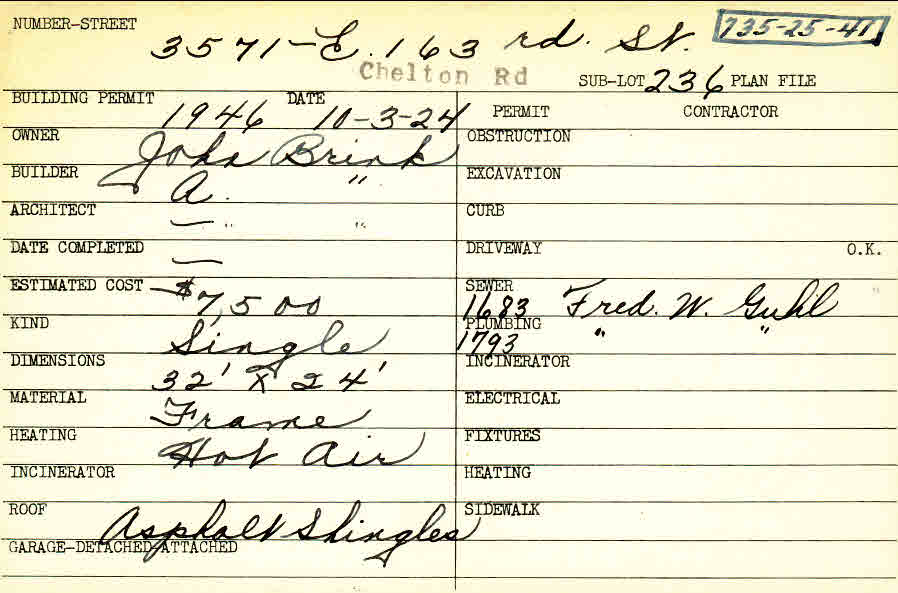 NUMBER-STREET 3571-E. 163 rd. St. 735-25-41
Chelton Rd SUB-LOT 236 PLAN FILE
BUILDING PERMIT 1946 DATE 10-3-24 PERMIT CONTRACTOR
OWNER John Brink OBSTRUCTION
BUILDER A. " EXCAVATION
ARCHITECT — " " CURB
DATE COMPLETED — DRIVEWAY O.K.
ESTIMATED COST $7,500 SEWER 1683 Fred. W. Guhl
KIND Single PLUMBING 1793 " "
DIMENSIONS 32' X 24' INCINERATOR
MATERIAL Frame ELECTRICAL
HEATING Hot Air FIXTURES
INCINERATOR HEATING
ROOF Asphalt Shingles SIDEWALK
GARAGE-DETACHED-ATTACHED